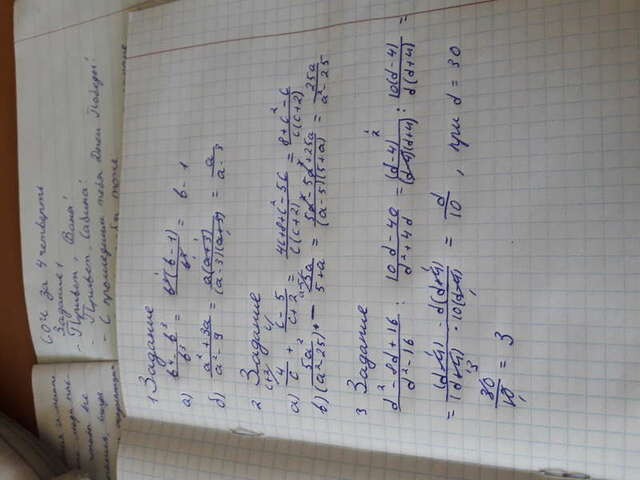 СОЧ за 4 четверть
Задание 1
- Привет, Ваня!
- Привет, Сабина!
- С прошедшим тебя Днём Победы!
тоже
1 Задание
а) (b⁴ - b³)/b³ = b³(b - 1)/b³ = b - 1
б) (a² + 3a)/(a² - 9) = a(a+3)/((a-3)(a+3)) = a/(a-3)
2 Задание
а) 4/c + (c - 5)/(c + 2) = (4c+8+c²-5c)/(c(c+2)) = (8+c²-c)/(c(c+2))
в) 5a²/(a²-25) - 5a/(5+a) = (5a²-5a²+25a)/((a-5)(5+a)) = 25a/(a²-25)
3 Задание
(d² - 8d + 16)/(d² - 16) : (10d - 40)/(d² + 4d) = (d-4)²/((d-4)(d+4)) : 10(d-4)/(d(d+4)) =
= (d-4) · d(d+4)/((d+4) · 10(d-4)) = d/10 , при d = 30
30/10 = 3